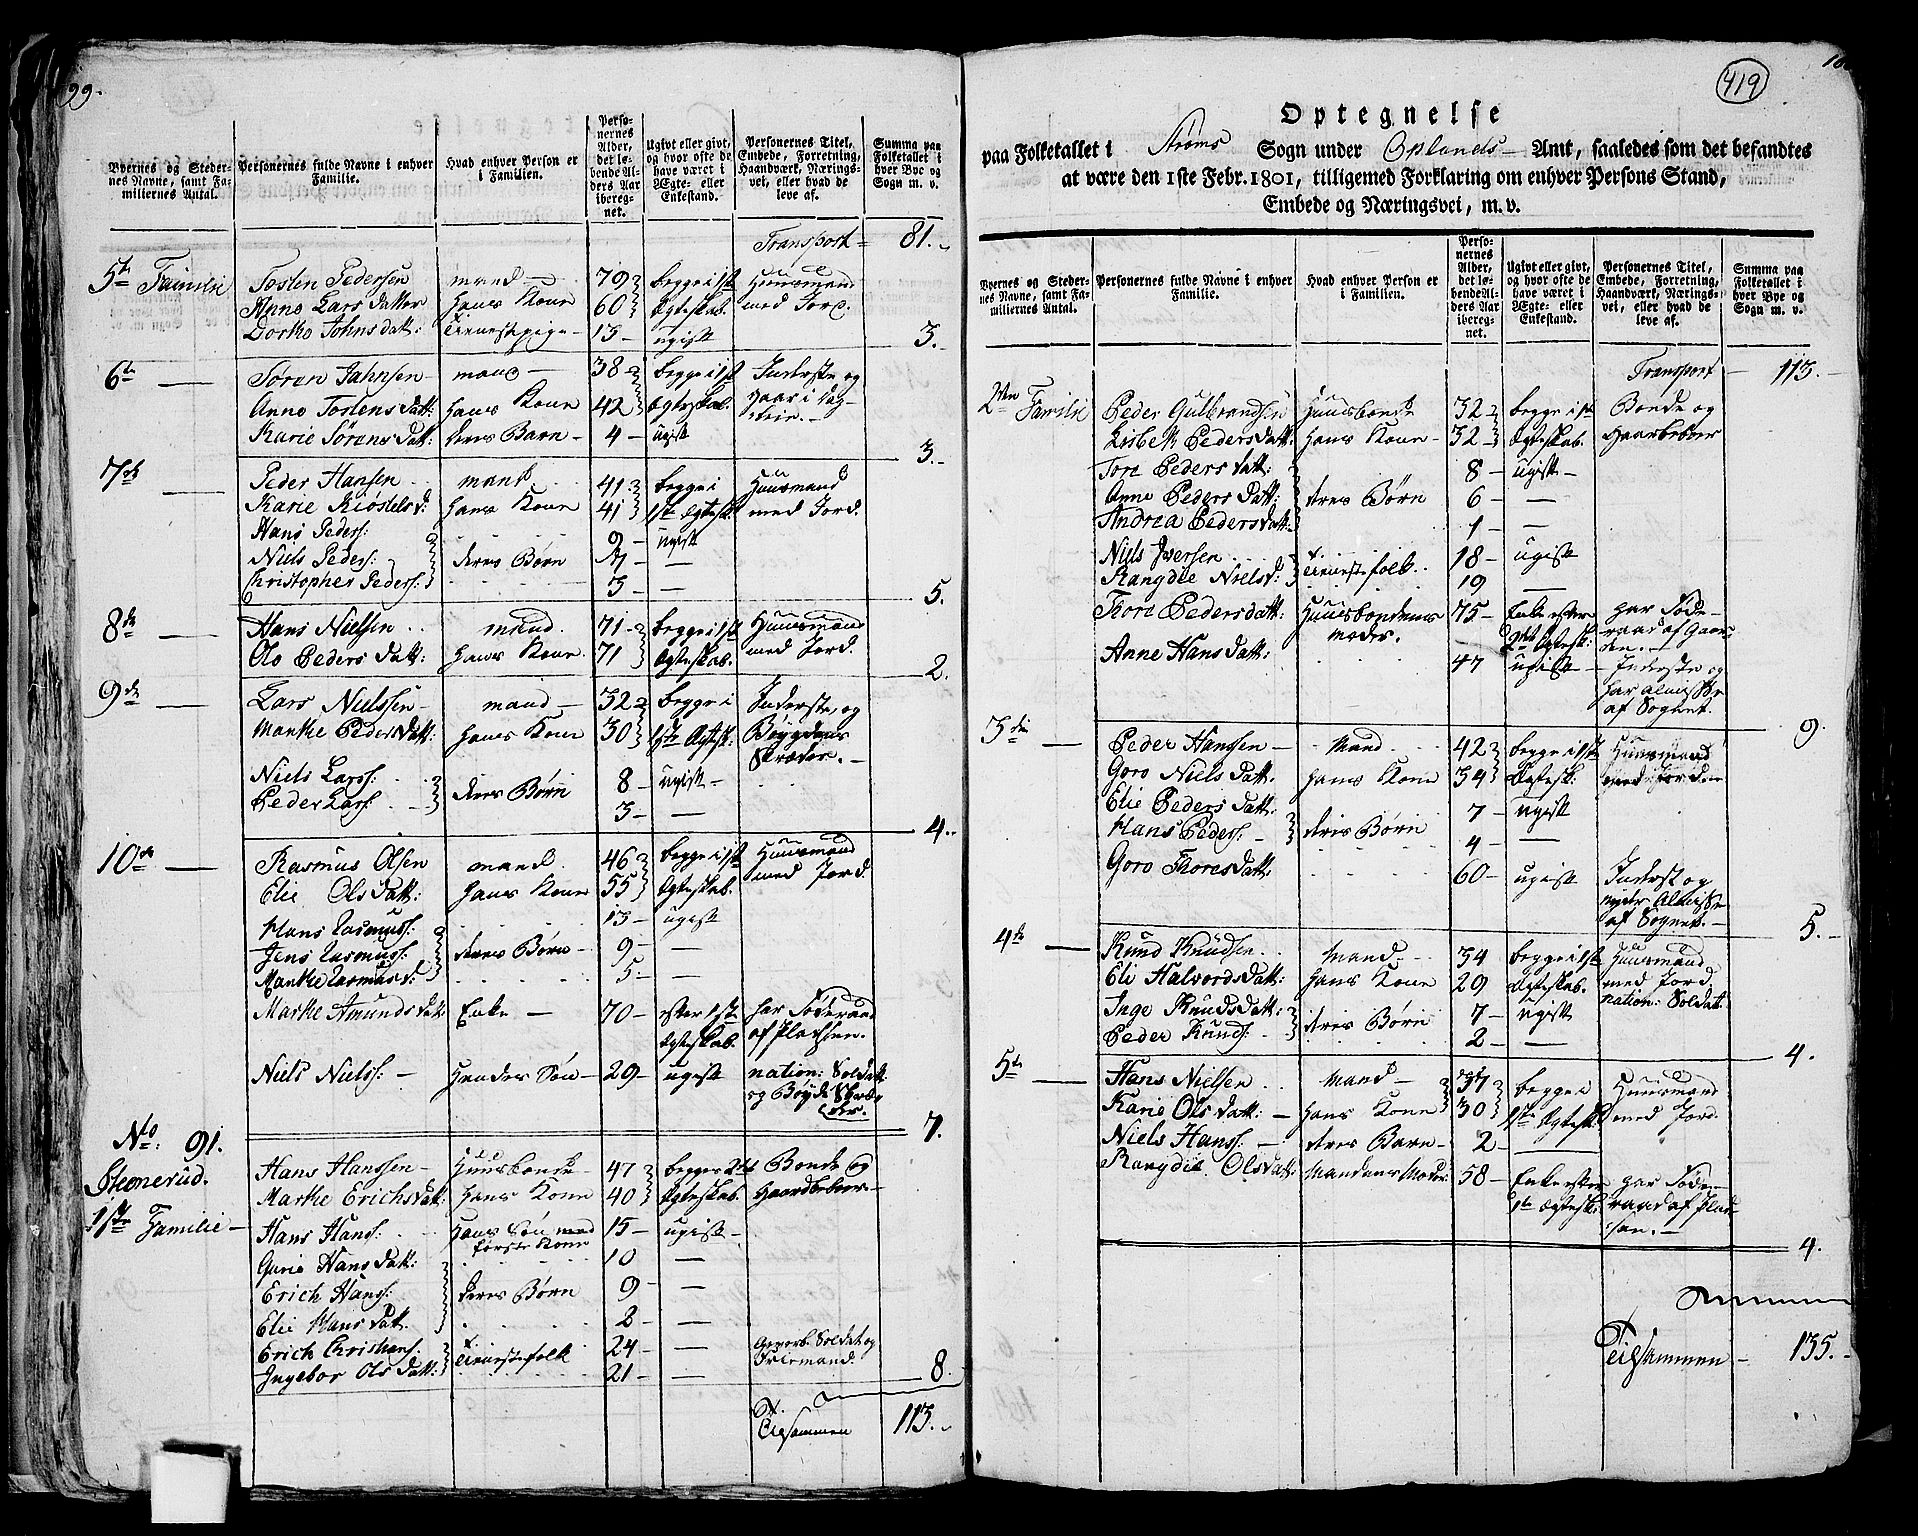 99.
Byernes og Stedernes Navne, samt Familiernes Antal.
Personernes fulde Navne i enhver Familie.
Hvad enhver Person er i Familien.
Personernes Alder, det løbende Alders Aar iberegnet.
Ugivt eller givt, og hvor ofte de have været i Ægte- eller Enkestand.
Personernes Titel, Embede, Forretning, Haandværk, Næringsvei, eller hvad de leve af.
Summa paa Folketallet i hver Bye og Sogn m. v.
Transport 81.
5te Familie Tosten Pedersen mand 79 begge i 1ste Huusmand
Anne Lars datter hans Kone 60 Ægteskab. med Jord.
Dorko Johns datt: tienestepige 13 ugift
3.
6te Søren Jahnsen mand 38 begge i 1st Inderste og
Anne Tostens datt: hans Kone 42 Ægteskab.
Karie Sørens datt: deres Barn 4 ugift
3.
7de Peder Hansen mand 41 begge i Huusmand
Karie Kiøstels d: hans Kone 41 1ste Ægtesk: med Jord.
Hans Peders: 9 ugift
Niels Peders: deres Børn
Christopher Peders: 3
5.
8de Hans Nielsen mand 71 begge i 1st Huusmand
Olo Peders datt: hans Kone 71 Ægteskab. med Jord.
2.
9de Lars Nielssen mand 32 begge i Inderste, og
Marthe Peders datt: hans Kone 30 1ste Ægtesk: Bøygdens
Skræder.
Niels Larss: 8 ugift
Peder Larss: deres Børn 3
4.
10de Rasmus Olsen mand 46 begge i 1st Huusmand
Elie Ols datt: hans Kone 55 Ægteskab. med Jord.
Hans Rasmuss: 13 ugift
Jens Rasmuss: deres Børn 9
Marthe Rasmus d: 5.
Marthe Amunds datt: Enke 70 efter 1ste har Føderaad
Ægteskab. af Pladsen.
Niels Nielss: Hendes Søn 29 ugift nation: Soldat
og Bøyde Skræder.
7.
No: 91.
Steenerud.
1ste Familie Hans Hanssen Huusbonde 47 begge i 2det Bonde og
Marthe Erichs datt: hans Kone 40 Ægteskab. Gaardbeboer
Hans Hanss: Hans Søn med første Kone 15 ugift
Gurie Hans datt: 10
Erich Hanss: deres Børn 9
Elie Hans datt. 2
Erich Christians: tienestefolk 24 Soldat og
Friemand.
Ingebor Ols datt: 21
8.
Tilsammen 113.
419
Optegnelse
paa Folketallet i Strøms Sogn under Oplands Amt, saaledes som det befandtes
at være den 1ste Febr. 1801, tilligemed Forklaring om enhver Persons Stand,
Embede og Næringsvei, m. v.
Byernes og Stedernes Navne, samt Familiernes Antal.
Personernes fulde Navne i enhver Familie.
Hvad enhver Person er i Familien.
Personernes Alder, det løbende Alders Aar iberegnet.
Ugivt eller givt, og hvor ofte de have været i Ægte- eller Enkestand.
Personernes Titel, Embede, Forretning, Haandværk, Næringsvei, eller hvad de leve af.
Summa paa Folketallet i hver Bye og Sogn m. v.
Transport 113.
2den Familie Peder Gulbrandsen Huusbonde 32 begge i 1st Bonde og
Lisbeth Peders datt: hans Kone 32 Ægteskab. Gaarbeboer
Tore Peders datt: 8 ugift
Anne Peders datt: deres Børn 6
Andrea Peders datt: 1
Niels Iversen 18 ugift
Rangdie Niels d: tienestefolk 19
Thore Peders datt: Huusbondens moder. 75 Enke efter 2det Ægtesk: har Føderaad af Gaarden.
Anne Hans datt: 47 ugift Inderste og
har almisse
af Sognet.
9.
3die Peder Hanssen Mand 42 begge i 1ste Huusmand
Goro Niels datt: hans Kone 34 Ægtesk: med Jorden
Elie Peders datt: 7 ugift
Hans Peders: deres Børn 4
Goro Thores datt: 60 ugift Inderst og
nyder Almisse
af Sognet.
5.
4de Knud Knudsen Mand 34 begge i 1ste Huusmand
Eli Halvords datt: hans Kone 29 Ægteskab. med Jord.
Inge Knuds datt: 7 ugift nation: Soldat
Peder Knuds: deres Børn 2
4.
5te Hans Nielsen Mand 37 begge i Huusmand
Karie Ols datt: hans Kone 30 1ste Ægtesk: med Jord.
Niels Hanss: deres Barn 2
Rangdie Ols datt: Mandens Moder 58 Enke efter har Føderaad
1ste Ægtesk: af Pladsen.
4.
Summa
Tilsammen 135.